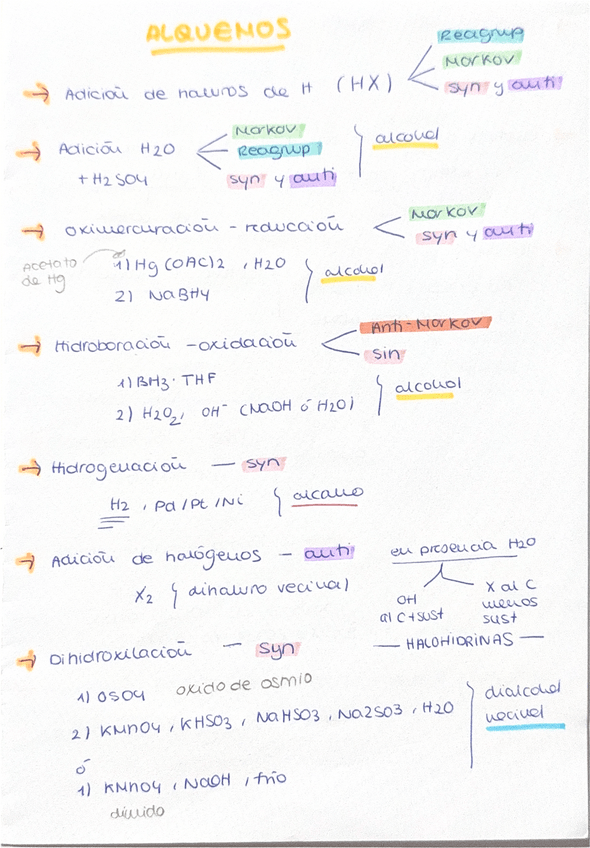 ALQUENOS
→ Adición de haluros de H (HX)
Reagrup
Markov
syn y anti
→ Adición H2O
+ H2SO4
Markov
Reagrup
syn y anti
alcohol
→ oximercuración - reducción
Markov
syn y anti
Acetato de Hg
1) Hg(OAc)2 , H2O
2) NaBH4
alcohol
→ Hidroboración - oxidación
Anti-Markov
sin
1) BH3·THF
2) H2O2, OH⁻ (NaOH ó H2O)
alcohol
→ Hidrogenación — syn
H2 , Pd/Pt/Ni
alcano
→ Adición de halógenos — anti
X2 { dihaluro vecinal
en presencia H2O
OH
al C+sust
X al C
menos
sust
— HALOHIDRINAS —
→ Dihidroxilación — syn
1) OsO4 oxido de osmio
2) KMnO4 , KHSO3 , NaHSO3 , Na2SO3 , H2O
ó
1) KMnO4 , NaOH , frío
diluido
dialcohol
vecinal